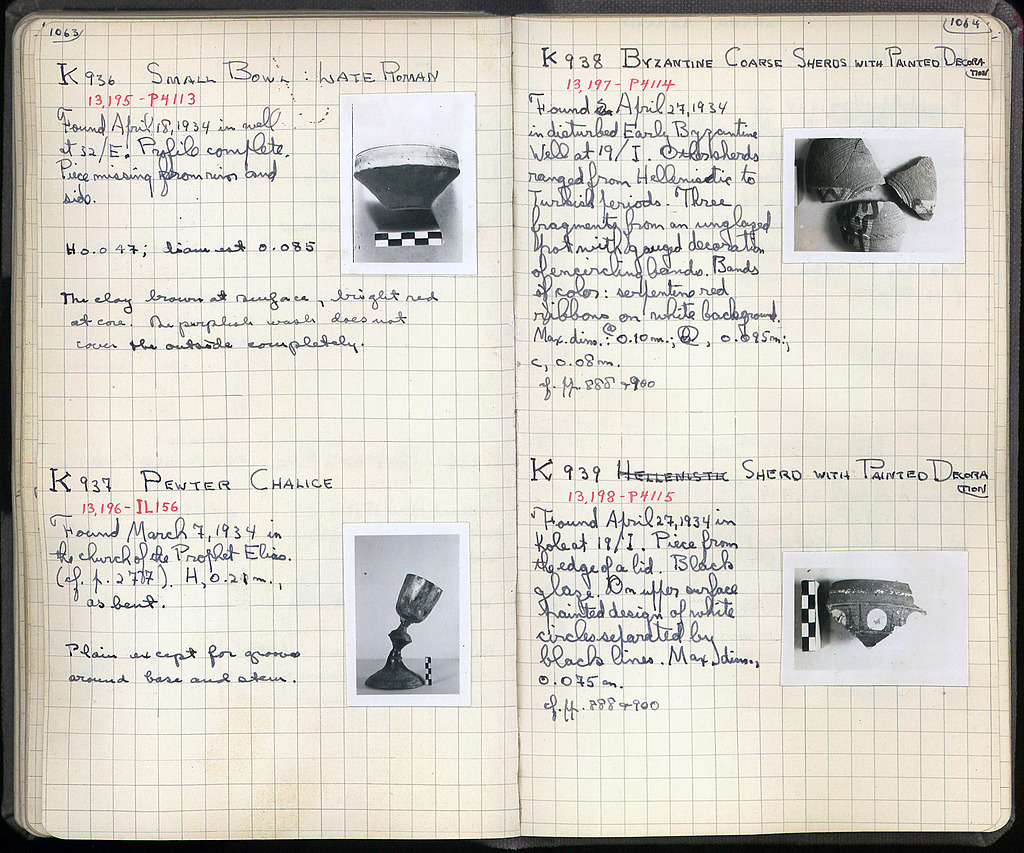 1063
K 936 SMALL BOWL : LATE ROMAN
13,195 - P4113
Found April 18, 1934 in well
at 32/E. Profile complete.
Piece missing from rim and
side.
H 0.047; diam est 0.085
The clay brown at surface, bright red
at core. The purplish wash does not
cover the outside completely.
K 937 PEWTER CHALICE
13,196 - IL156
Found March 7, 1934 in
the church of the Prophet Elias.
(cf. p. 2777). H, 0.21m.,
as bent.
Plain except for grooves
around base and stem.
1064
K 938 BYZANTINE COARSE SHERDS WITH PAINTED DECORA
TION
13,197 - P4114
Found April 27, 1934
in disturbed Early Byzantine
Well at 19/I. Other sherds
ranged from Hellenistic to
Turkish periods. Three
fragments from an unglazed
pot with gouged decoration
of encircling bands. Bands
of color: serpentine red
ribbons on white background.
Max. dims.: a 0.10m.; b, 0.095m.;
c, 0.08m.
cf. pp. 888 + 900
K 939 HELLENISTIC SHERD WITH PAINTED DECORA
TION
13,198 - P4115
Found April 27, 1934 in
hole at 19/I. Piece from
the edge of a lid. Black
glaze. On upper surface
painted design of white
circles separated by
black lines. Max. dim.,
0.075m.
cf. pp. 888 + 900